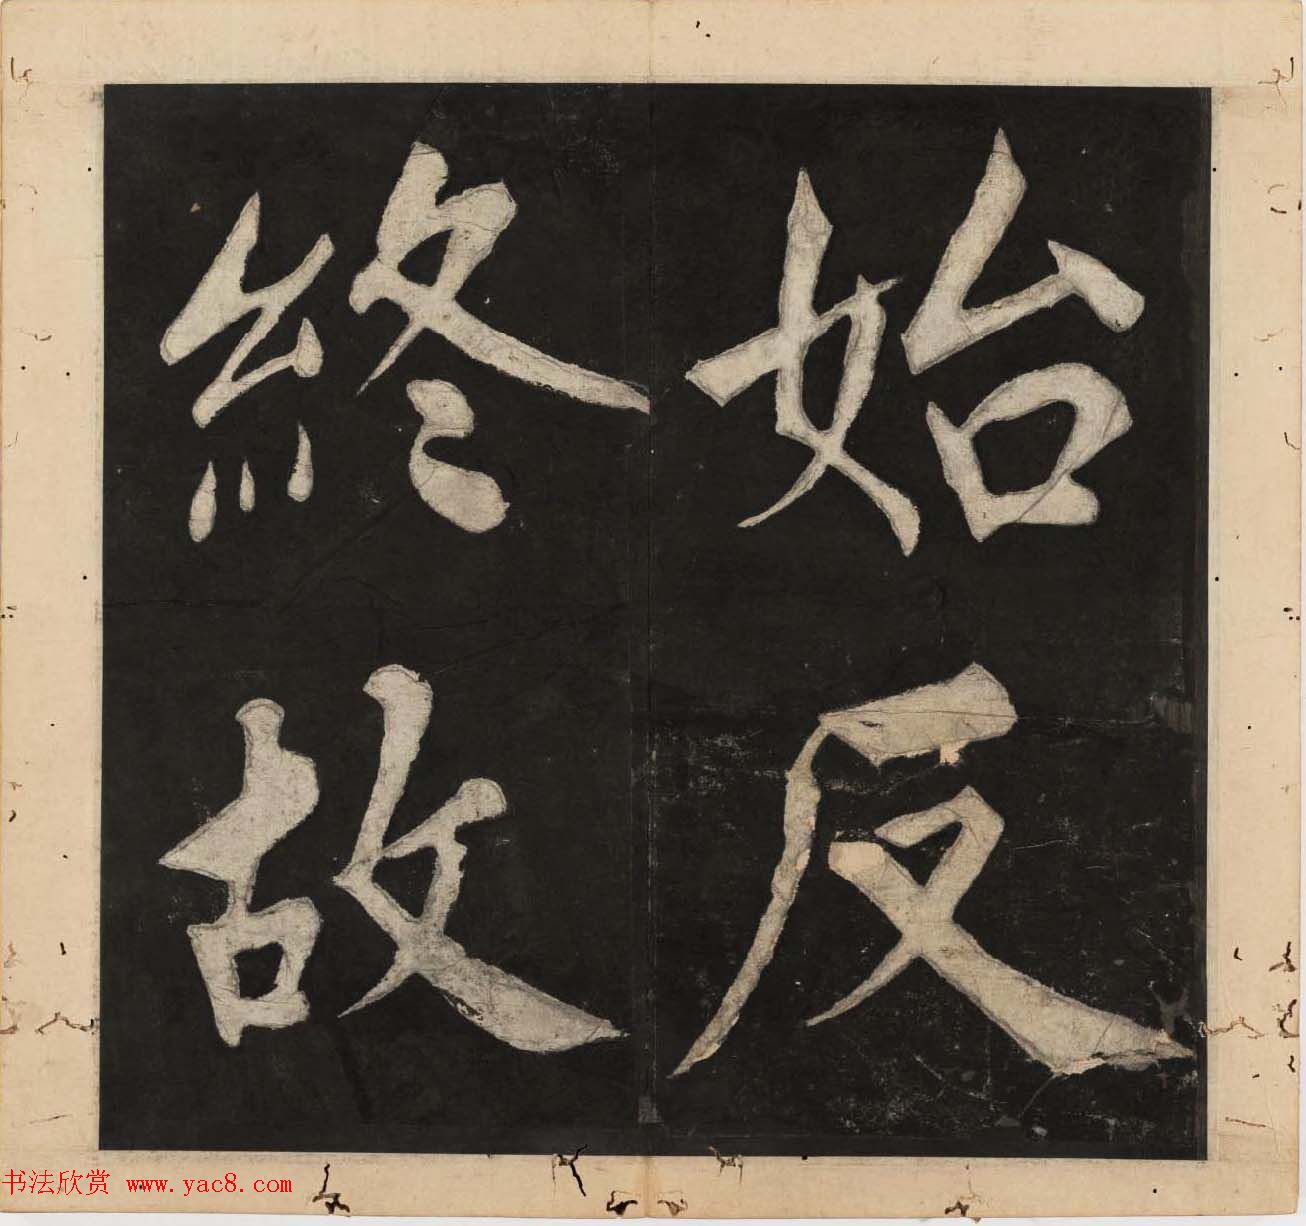 始反
終故
书法欣赏 www.yac8.com